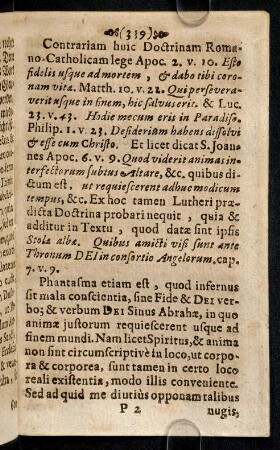 (339)
Contrariam huic Doctrinam Roma-
no-Catholicam lege Apoc. 2. v. 10. Esto
fidelis usque ad mortem, & dabo tibi coro-
nam vitæ. Matth. 10. v. 22. Qui persevera-
verit usque in finem, hic salvus erit. & Luc.
23. v. 43. Hodie mecum eris in Paradiso.
Philip. 1. v. 23. Desiderium habens dissolvi
& esse cum Christo. Et licet dicat S. Joan-
nes Apoc. 6. v. 9. Quod viderit animas in-
terfectorum subtus Altare, &c. quibus di-
ctum est, ut requiescerent adhuc modicum
tempus, &c. Ex hoc tamen Lutheri præ-
dicta Doctrina probari nequit, quia &
additur in Textu, quod datæ sint ipsis
Stolæ albæ. Quibus amicti visi sunt ante
Thronum DEI in consortio Angelorum, cap.
7. v. 9.
Phantasma etiam est, quod infernus
sit mala conscientia, sine Fide & DEI ver-
bo; & verbum DEI Sinus Abrahæ, in quo
animæ justorum requiescerent usque ad
finem mundi. Nam licet Spiritus, & anima
non sint circumscriptivè in loco, ut corpo-
ra & corporea, sunt tamen in certo loco
reali existentia, modo illis conveniente.
Sed ad quid me diutiùs opponam talibus
P 2 nugis;